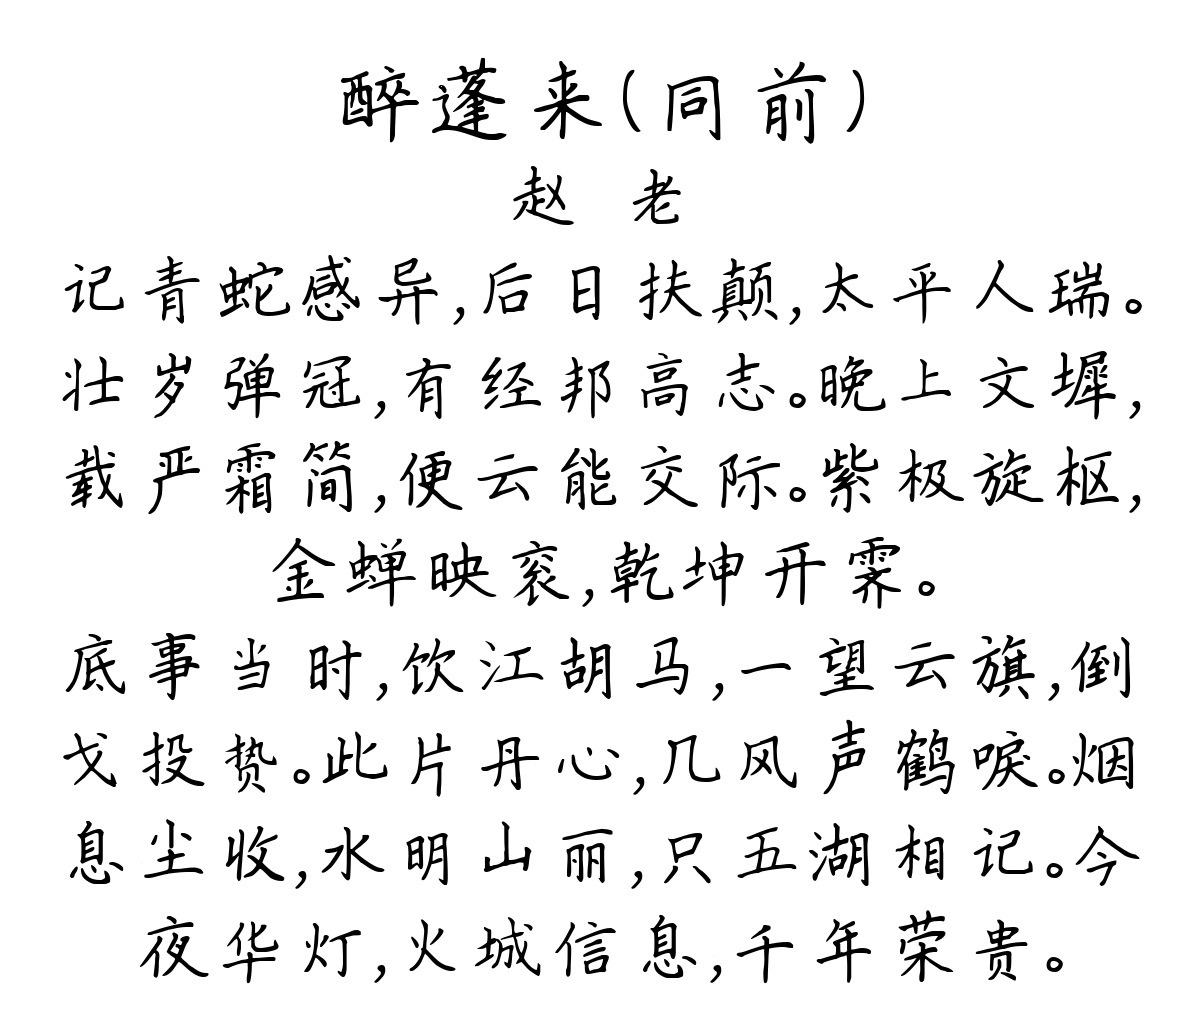 醉蓬来(同前)
赵 老
记青蛇感异,后日扶颠,太平人瑞。
壮岁弹冠,有经邦高志。晚上文墀,
载严霜简,便云能交际。紫极旋枢,
金蝉映衮,乾坤开霁。
底事当时,饮江胡马,一望云旗,倒
戈投贽。此片丹心,几风声鹤唳。烟
息尘收,水明山丽,只五湖相记。今
夜华灯,火城信息,千年荣贵。